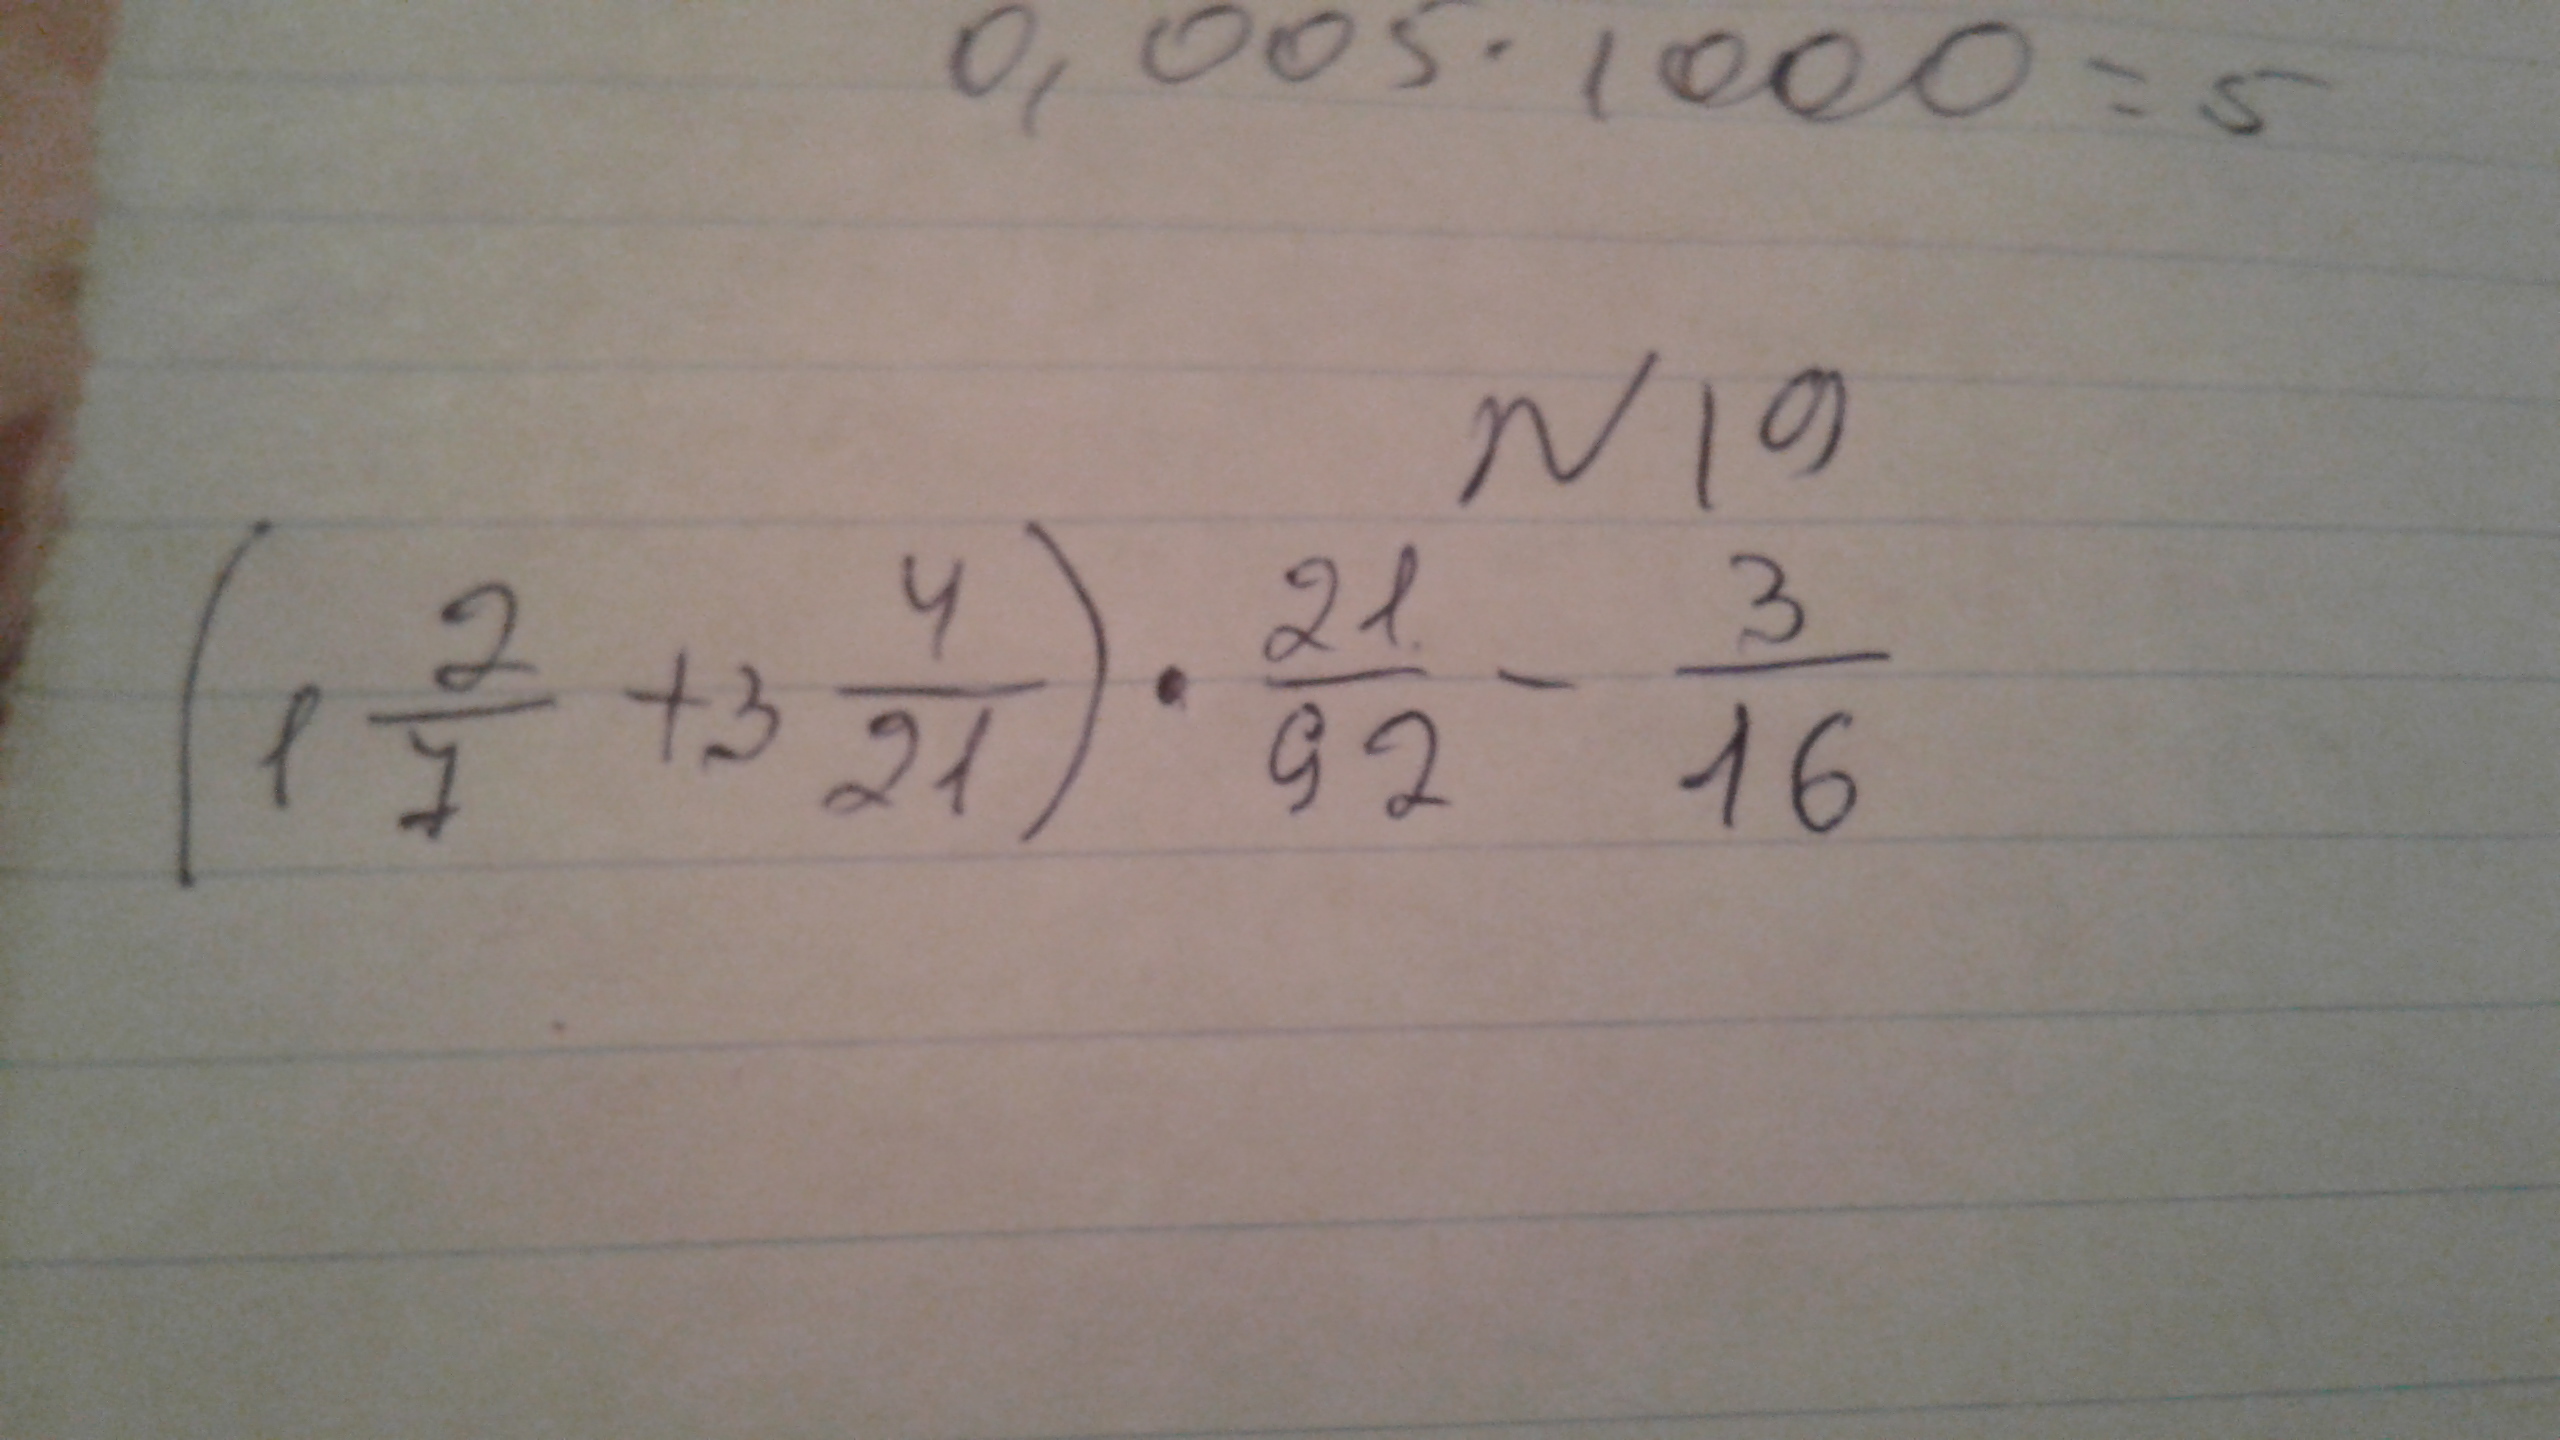 0,005·1000=5
N19
(1 2/7 + 3 4/21) · 21/92 - 3/16